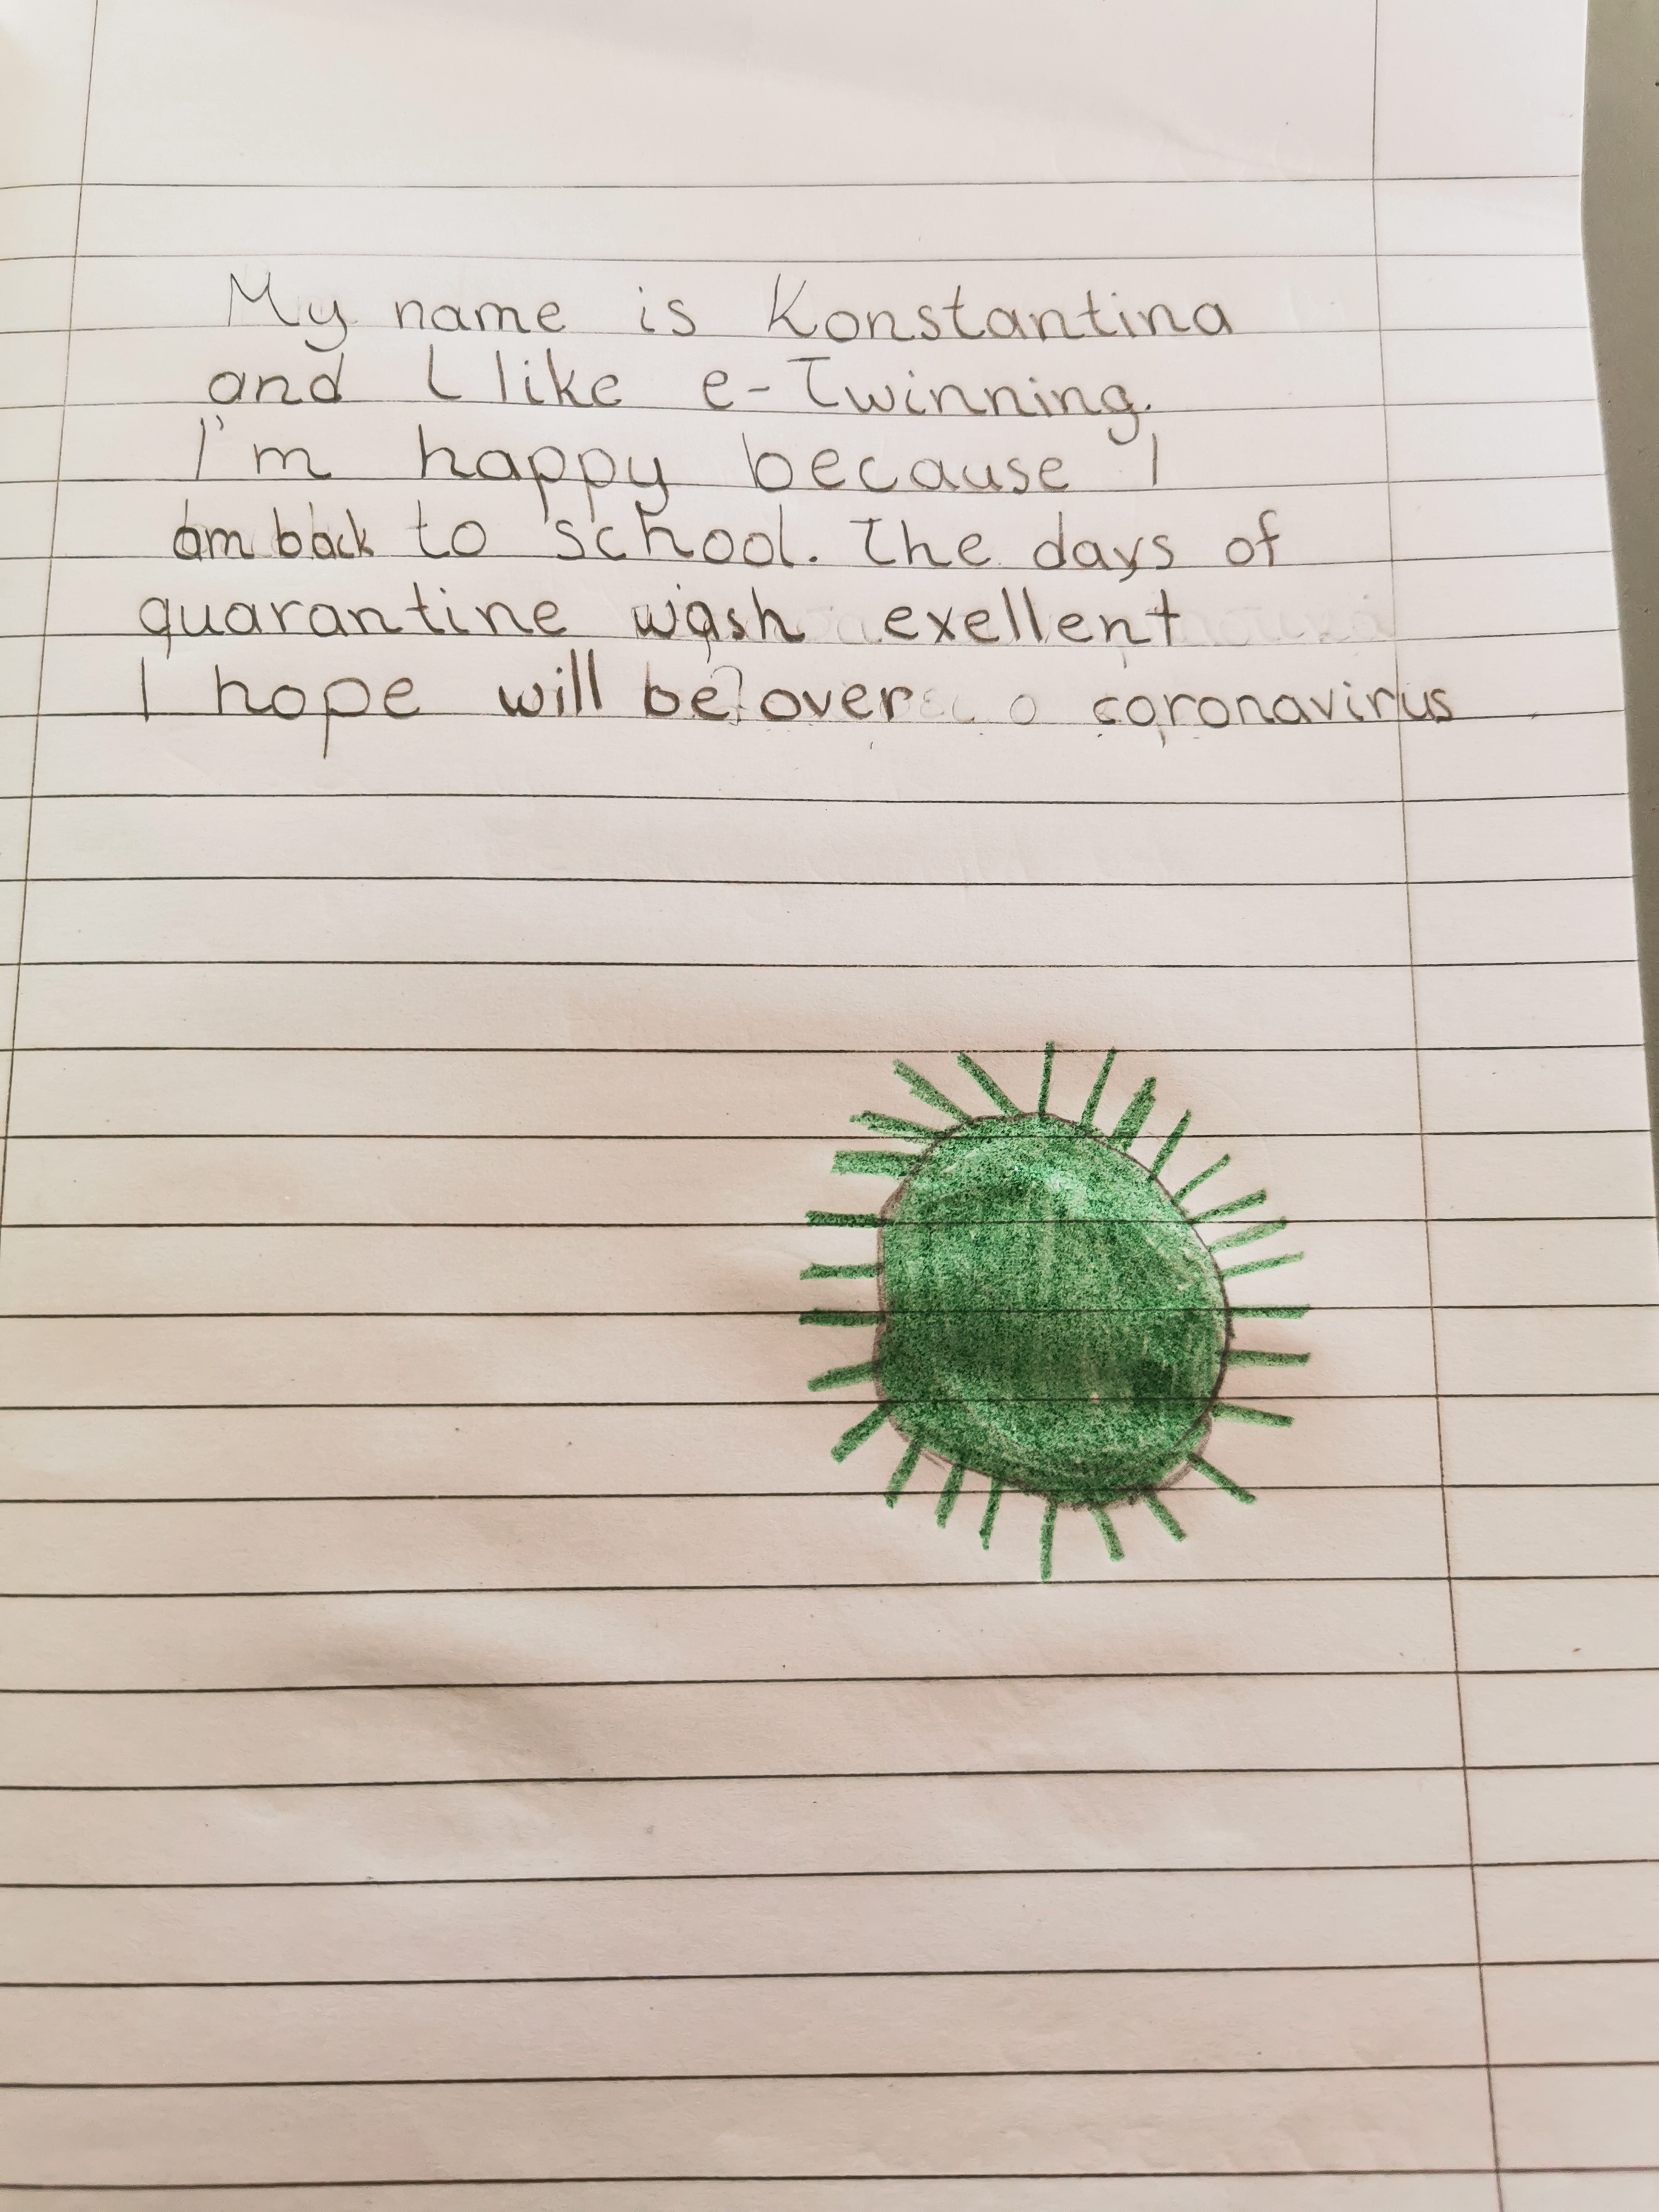 My name is Konstantina
and I like e-Twinning.
I'm happy because I
am back to school. The days of
quarantine wash exellent
I hope will be over coronavirus